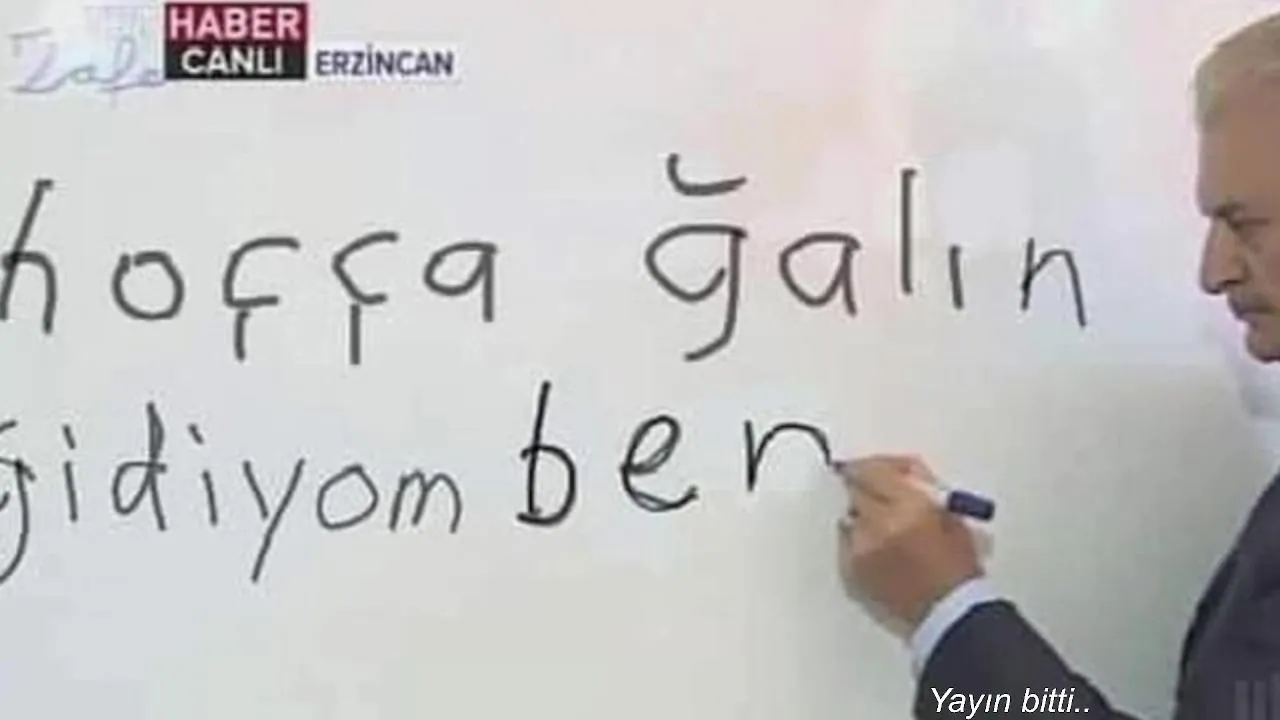 HABER
CANLI ERZİNCAN
hoçça ğalın
gidiyom ben
Yayın bitti..